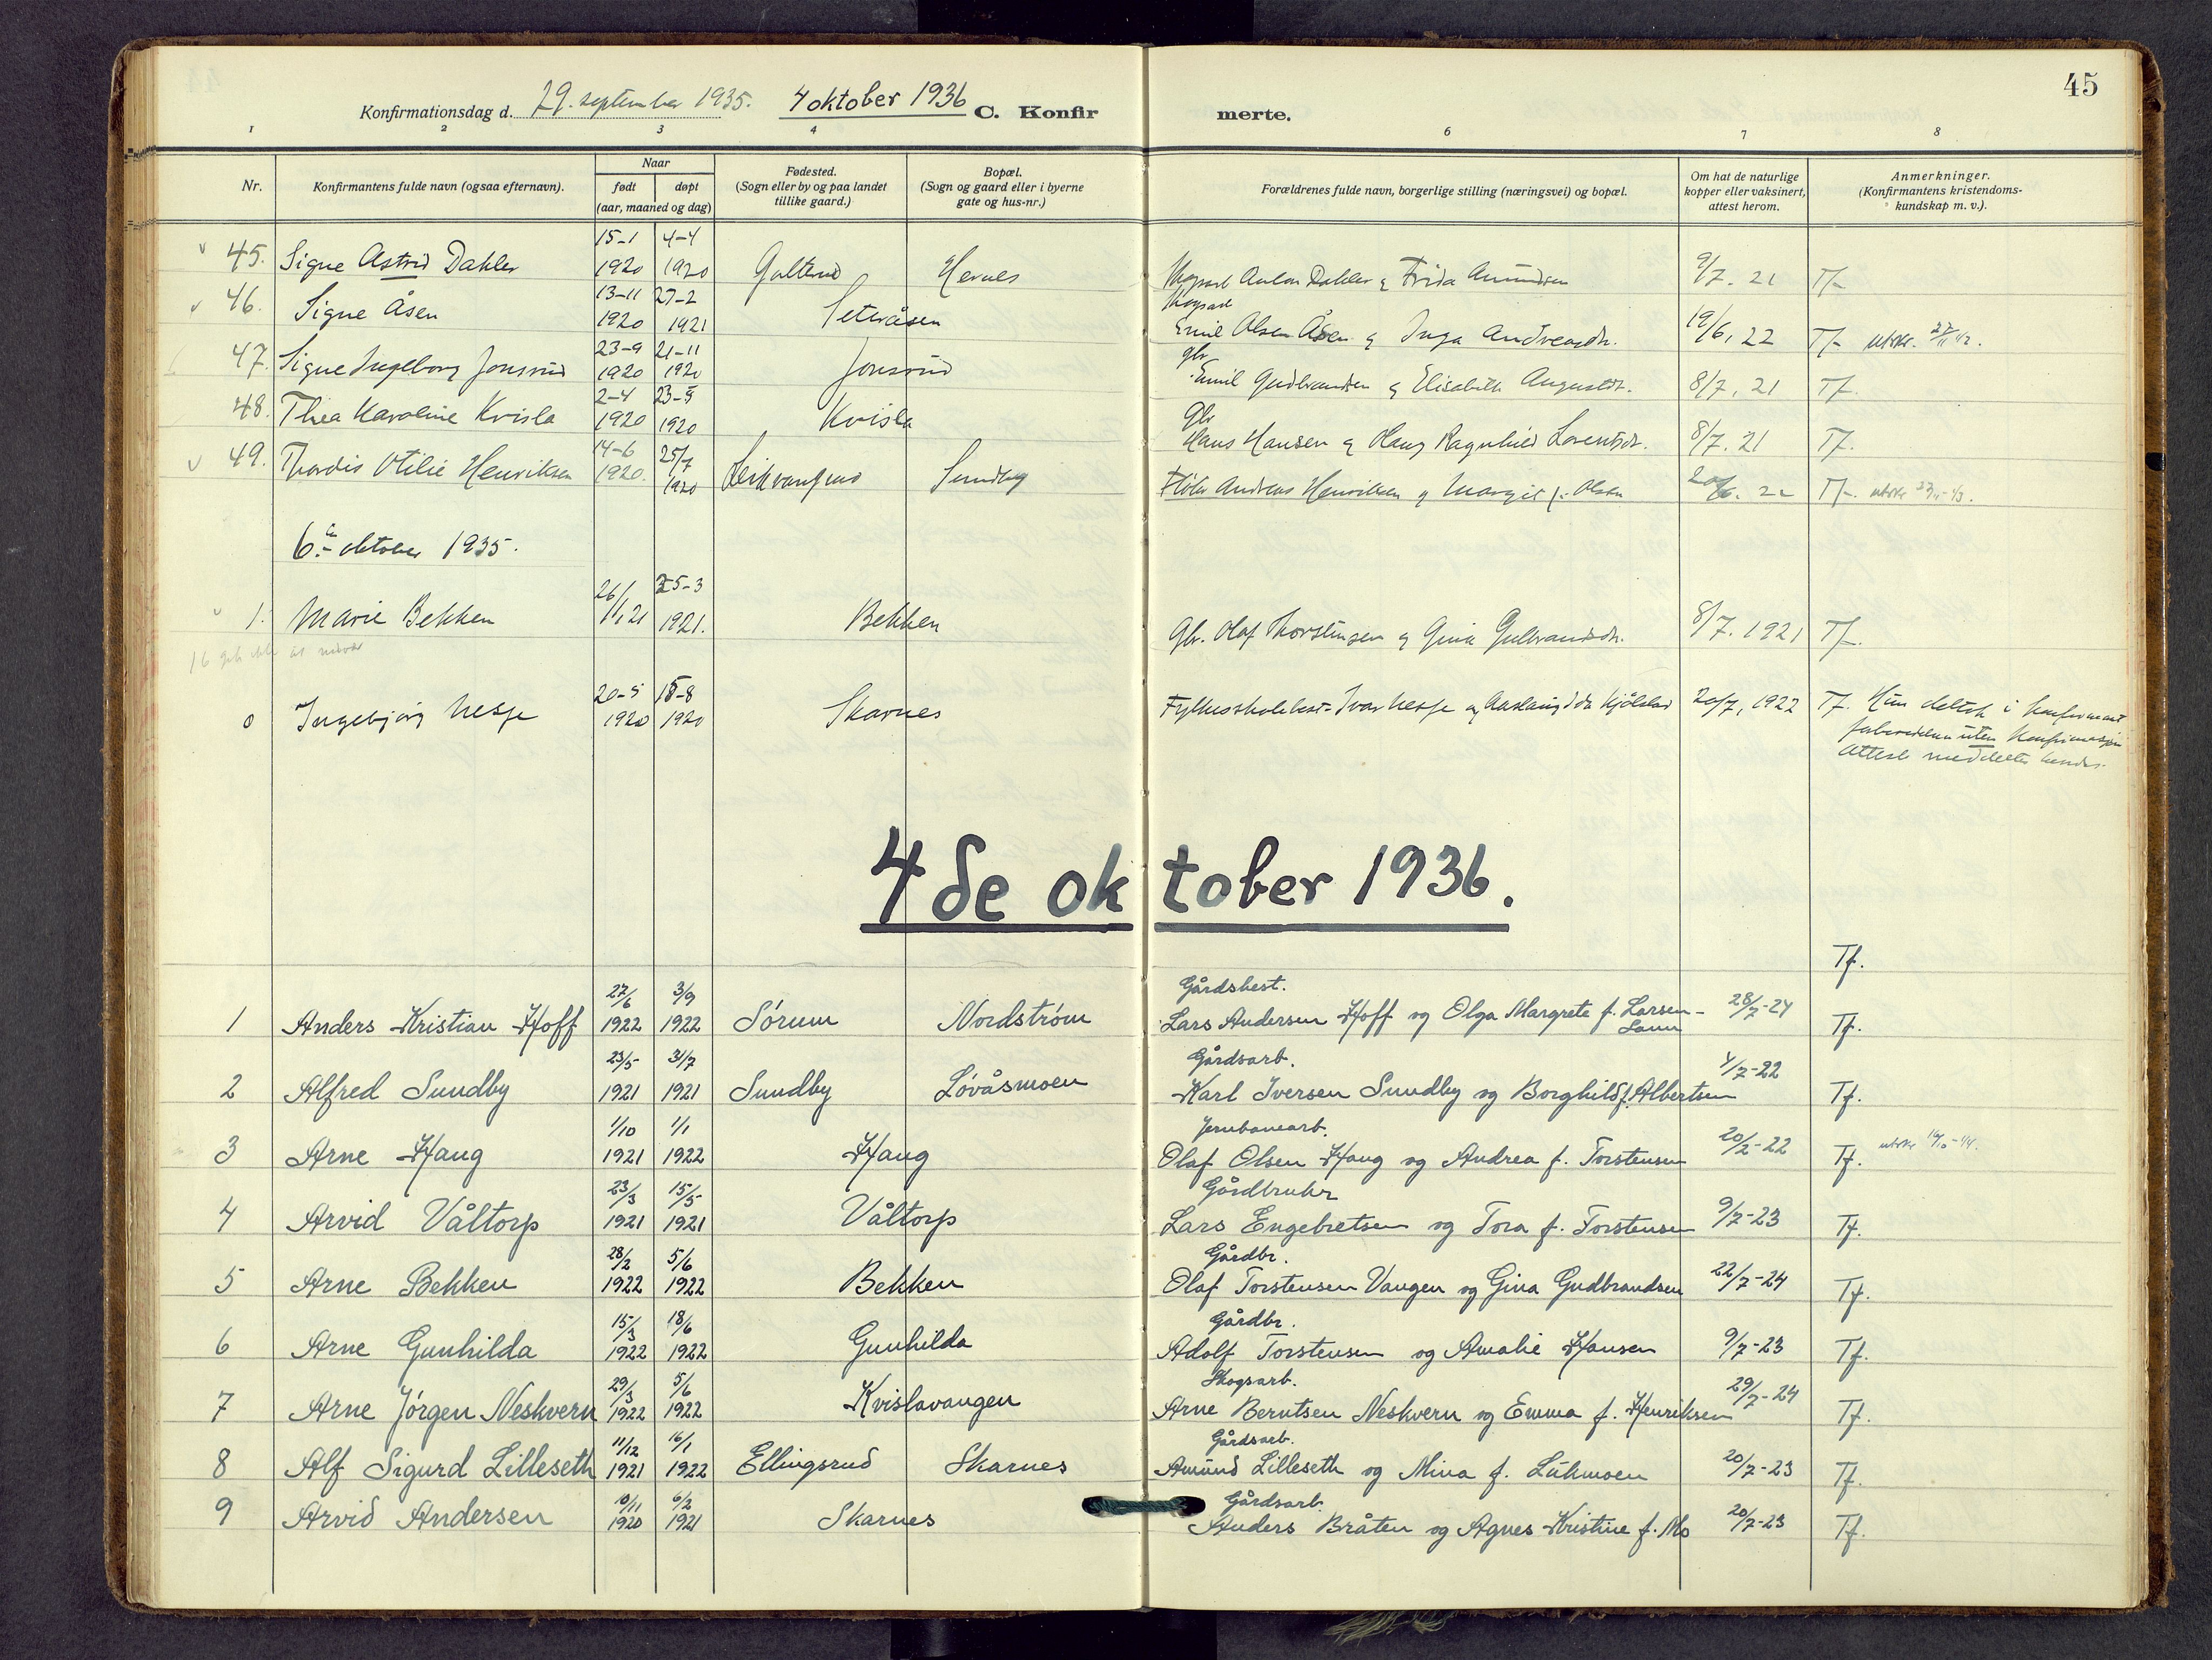 45
Konfirmationsdag d. 29. september 1935. 4 oktober 1936 C. Konfir merte.
1 2 3 4 6 7 8
Nr.
Konfirmantens fulde navn (ogsaa efternavn).
Naar
født
døpt
(aar, maaned og dag)
Fødested.
(Sogn eller by og paa landet
tillike gaard.)
Bopæl.
(Sogn og gaard eller i byerne
gate og hus-nr.)
Forældrenes fulde navn, borgerlige stilling (næringsvei) og bopæl.
Om hat de naturlige
kopper eller vaksinert,
attest herom.
Anmerkninger.
(Konfirmantens kristendoms-
kundskap m. v.).
15-1 4-4
45. Signe Astrid Dahler 1920 1920 Galterud Hernes Anton Dahler & Frida Amundsen 9/7. 21 Tf
13-11 27-2
46. Signe Åsen 1920 1921 Seteråsen Emil Olsen Åsen & Inga Andreasdr. 19/6, 22 Tf
23-9 21-11 gbr
47. Signe Ingeborg Jonsrud 1920 1920 Jonsrud Emil Gudbrandsen & Elisabeth Augustdr. 8/7, 21 Tf.
2-4 23-5 Gbr
48. Thea Karoline Kvisla 1920 1920 Kvisla Hans Hansen & Ragnhild Lorentsdr. 8/7. 21 Tf.
14-6 25/7
49. Thordis Otilie Henriksen 1920. 1920 Sundby Andreas Henriksen & Margit f. Olsen Tf.
6te oktober 1935.
26/ 25-3
1. Marie Bekken 11, 21 1921. Bekken Gbr. Olaf Thorstensen & Gina Gulbrandsdr. 8/7. 1921 Tf.
20-5 15-8
0 Ingebjørg Nesje 1920 1920 Skarnes Ivar Nesje og Aaslaug Kjölstad 20/7, 1922 Tf. Hun deltok i konfirmant
forberedelsen uten konfirmasjon
Attest meddeltes hende.
4de oktober 1936.
Tf.
27/6 3/9 Gårdsbest.
1 Anders Kristian Hoff 1922 1922 Sørum Nordstrøm Lars Andersen Hoff og Olga Margrete f. Larsen- 28/7-24 Tf.
23/5 31/7 Gårdsarb.
2 Alfred Sundby 1921 1921 Sundby Løvåsmoen Karl Iversen Sundby og Borghild f. Albertsen 4/7-22 Tf.
1/10 1/1 Jernbanearb.
3 Arne Haug 1921 1922 Haug Olaf Olsen Haug og Andrea f. Torstensen 20/2-22 Tf.
23/3 15/5 Gårdbruker
4 Arvid Våltorp 1921 1921 Våltorp Lars Engebretsen og Tora f. Torstensen 9/7-23 Tf.
28/2 5/6 Gårdbr.
5 Arne Bekken 1922 1922 Bekken Olaf Torstensen Vangen og Gina Gudbrandsen 22/7-24 Tf.
15/3 18/6 Gårdbr.
6 Arne Gunhilda 1922 1922 Gunhilda Adolf Torstensen og Amalie Hansen 9/7-23 Tf.
29/3 5/6 Skogsarb.
7 Arne Jørgen Neskvern 1922 1922 Kvislavangen Arne Berntsen Neskvern og Emma f. Henriksen 29/7-24 Tf.
11/12 16/1 Gårdsarb.
8 Alf Sigurd Lilleseth 1921 1922 Ellingsrud Skarnes Amund Lilleseth og Mina f. Lukmoen 20/7-23 Tf.
10/11 6/2 Gårdsarb.
9 Arvid Andersen 1920 1921 Skarnes Anders Bråten og Agnes Kristine f. Mo 20/7-23 Tf.